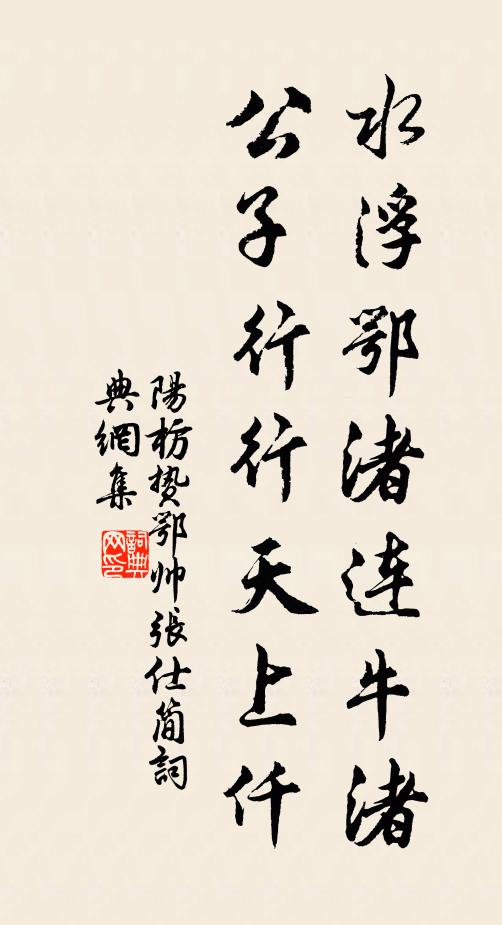 水浮鄂渚連牛渚
公子行行天上仟
陽枋贄鄂帅張仕簡詞
典網集
詞典网印